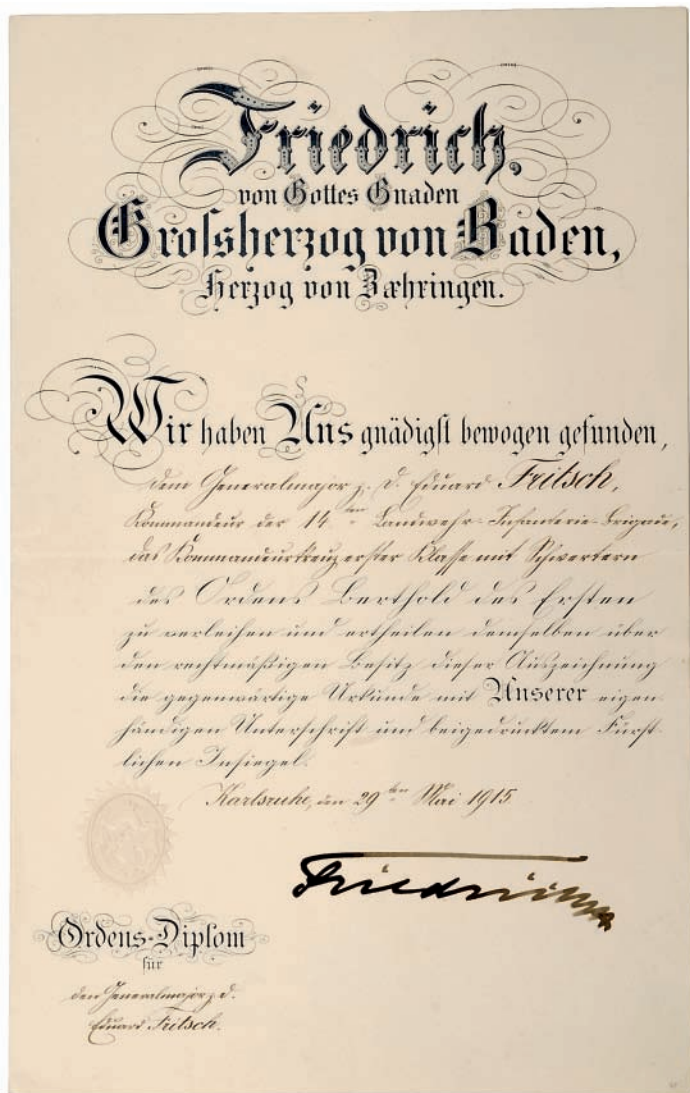 Friedrich,
von Gottes Gnaden
Grossherzog von Baden,
Herzog von Zæhringen.
Wir haben Uns gnädigst bewogen gefunden,
dem Generalmajor z. D. Eduard Fritsch,
Kommandeur der 14ten Landwehr-Infanterie-Brigade,
das Kommandeurkreuz erster Klasse mit Schwertern
des Ordens Berthold des Ersten
zu verleihen und ertheilen demselben über
den rechtmäßigen Besitz dieser Auszeichnung
die gegenwärtige Urkunde mit Unserer eigen
händigen Unterschrift und beigedrucktem Fürst
lichen Insiegel.
Karlsruhe, den 29ten Mai 1915.
Friedrich
Ordens-Diplom
für
den Generalmajor z. D.
Eduard Fritsch.